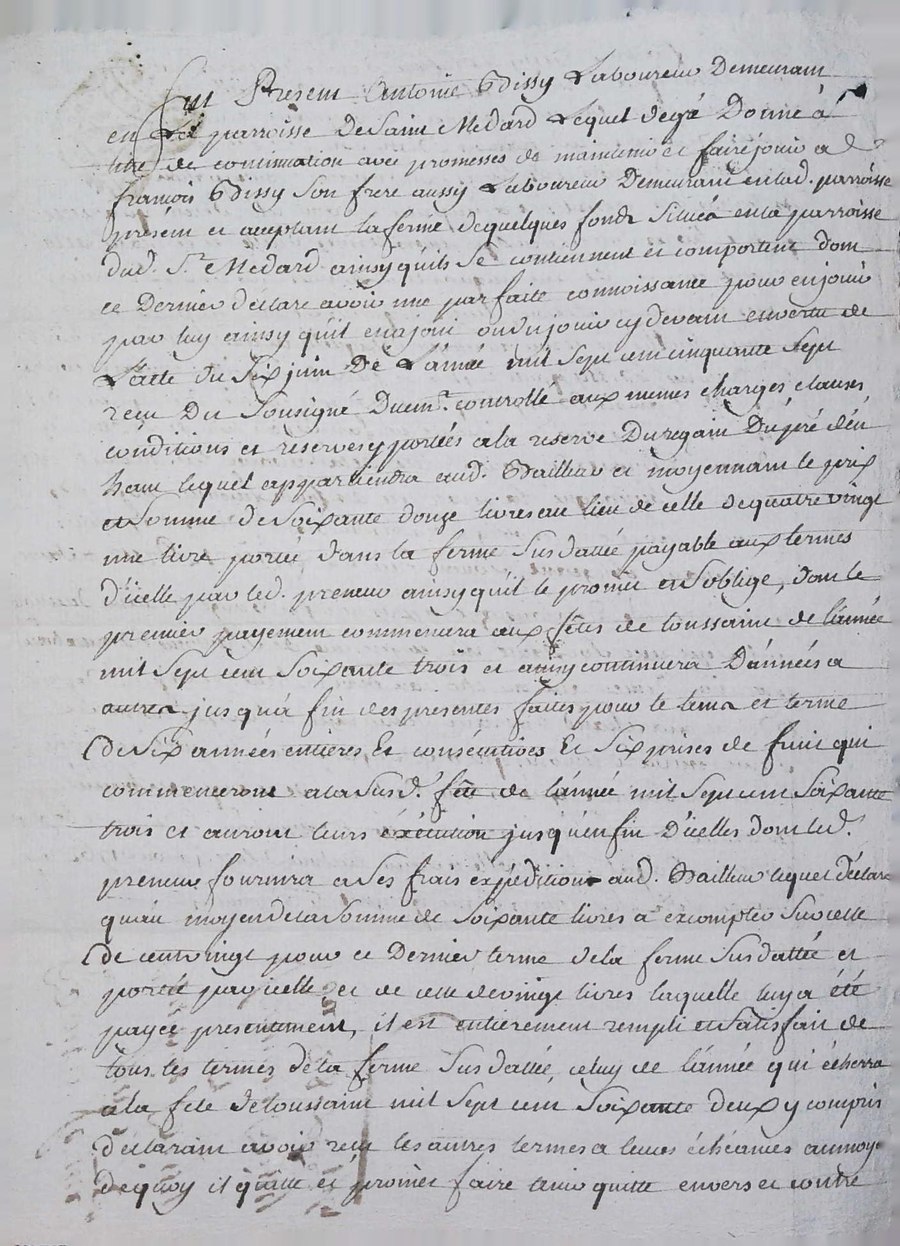 fut Present Antoine Bdissy Laboureur Demeurant
en La parroisse de Saint Medard Lequel degré Donne à
titre de continuation avec promesses de maintenir et faire jouir a
françois Bdissy Son frere aussy Laboureur Demeurant en lad. parroisse
présent et aceptant la ferme de quelques fonds Situés en la parroisse
dud. St. Medard ainsy quils se contiennent et comportent dont
ce Dernier déclare avoir une parfaite connoissance pour en jouir
par luy ainsy quil en a joui ou du jouir cy devant en vertu de
L'acte du Six juin De L'année mil Sept cent cinquante Sept
recu Du Sousigné Duem.t controllé aux memes charges, clauses
conditions et reserves y portées a la reserve Du regain Du pré d'en
haut lequel appartiendra aud. Bailleur et moyennant le prix
et Somme de Soixante douze livres au lieu de celle de quatre vingt
une livre portée dans la ferme Sus dattée payable aux termes
d'icelle par led. preneur ainsy quil le promet et S'oblige, dont le
premier payement commencera aux fêtes de toussaint de l'année
mil Sept cent Soixante trois et ainsy continuera D'années a
autres jusqu'a fin des presentes faites pour le tems et terme
de Six années entieres Et consécutives Et Six prises de fruit qui
commenceront a la Susd.e fête de l'année mil Sept cent Soixante
trois et auront leurs éxécution jusqu'en fin D'icelles dont led.
preneur fournira a Ses frais expédition aud. Bailleur lequel déclare
qu'au moyen de la Somme de Soixante livres a excompter Sur celle
de cent vingt pour ce Dernier terme de la ferme Sus dattée et
portée par icelle et de celle de vingt livres laquelle luy a été
payée presentement, il est entierement rempli et Satisfait de
tous les termes de la ferme Sus dattée, celuy de l'année qui écherra
a la fete de toussaint mil Sept cent Soixante deux y compris
déclarant avoir recu les autres termes a leurs échéances au moye
de quoy il quitte et promet faire tenir quitte envers et contre